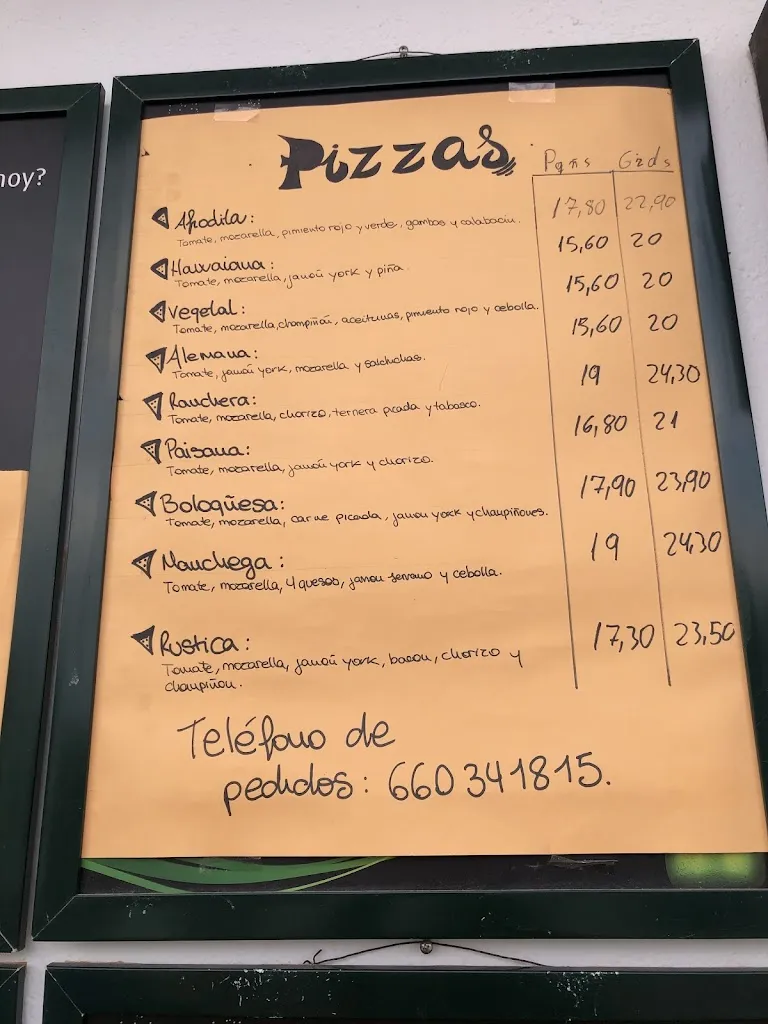 hoy?
Pizzas
Pqñs Grds
Afrodita: 17,80 22,90
Tomate, mozarella, pimiento rojo y verde, gambas y calabacín.
Hawaiana: 15,60 20
Tomate, mozarella, jamón york y piña.
Vegetal: 15,60 20
Tomate, mozarella, champiñón, aceitunas, pimiento rojo y cebolla.
Alemana: 15,60 20
Tomate, jamón york, mozarella y salchichas.
Ranchera: 19 24,30
Tomate, mozarella, chorizo, ternera picada y tabasco.
Paisana: 16,80 21
Tomate, mozarella, jamón york y chorizo.
Bologñesa: 17,90 23,90
Tomate, mozarella, carne picada, jamon york y champiñones.
Manchega: 19 24,30
Tomate, mozarella, 4 quesos, jamon serrano y cebolla.
Rustica: 17,30 23,50
Tomate, mozarella, jamón york, bacon, chorizo y
champiñon.
Teléfono de
pedidos: 660341815.